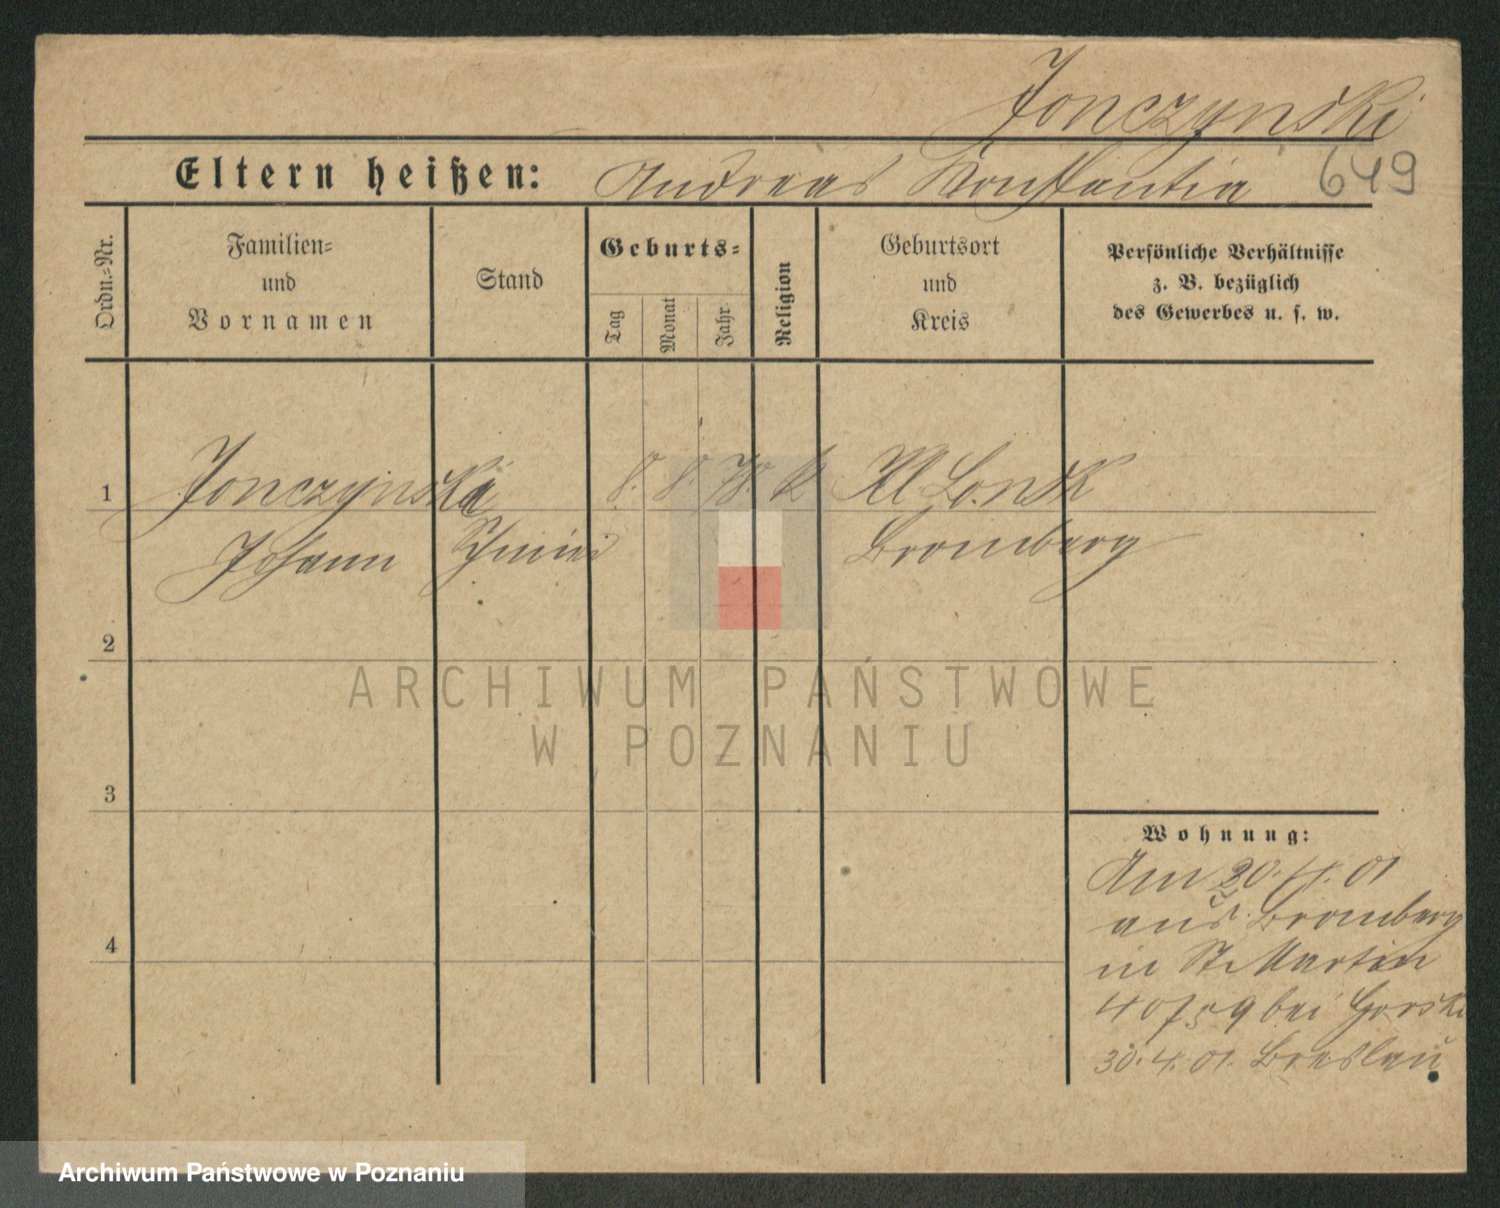 Jonczynski
Eltern heißen: Andreas Konstantia 649
Ordn.-Nr.
Familien-
und
Vornamen
Stand
Geburts-
Tag
Monat
Jahr
Religion
Geburtsort
und
Kreis
Persönliche Verhältnisse
z. B. bezüglich
des Gewerbes u. s. w.
1 Jonczynski 8. 8. 78. k Kl
Johann Bromberg
2
ARCHIWUM PAŃSTWOWE
W POZNANIU
3
Wohnung:
Am 20. 4. 01
aus Bromberg
in St Martin
bei Gorski
4
30. 4. 01. Breslau
Archiwum Państwowe w Poznaniu